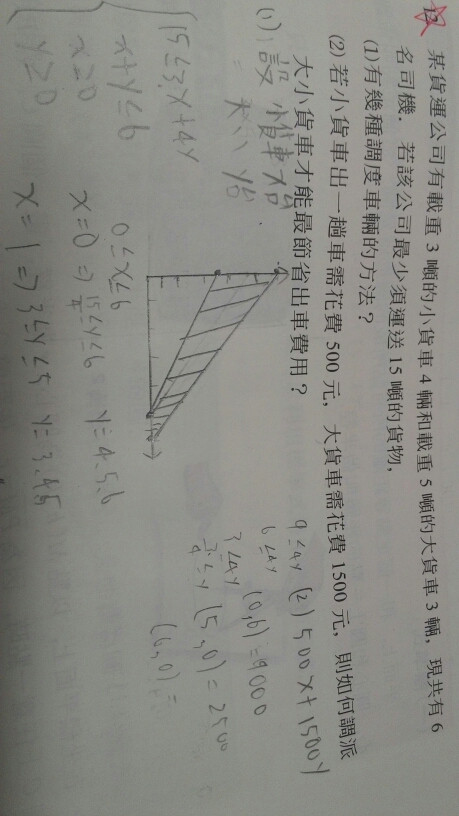 12. 某貨運公司有載重 3 噸的小貨車 4 輛和載重 5 噸的大貨車 3 輛，現共有 6
名司機．若該公司最少須運送 15 噸的貨物，
(1)有幾種調度車輛的方法？
(2)若小貨車出一趟車需花費 500 元，大貨車需花費 1500 元，則如何調派
大小貨車才能最節省出車費用？
(1) 設小貨車 x 台
大 y 台
15≤3x+4y
x+y≤6
x≥0
y≥0
0≤x≤6
x=0 ⇒ 15/4≤y≤6 y=4.5.6
x=1 ⇒ 3≤y≤5 y=3.4.5
9≤4y
6≤4y
3≤4y
3/4≤y
(2) 500x+1500y
(0,6)=9000
(5,0)=2500
(6,0)=